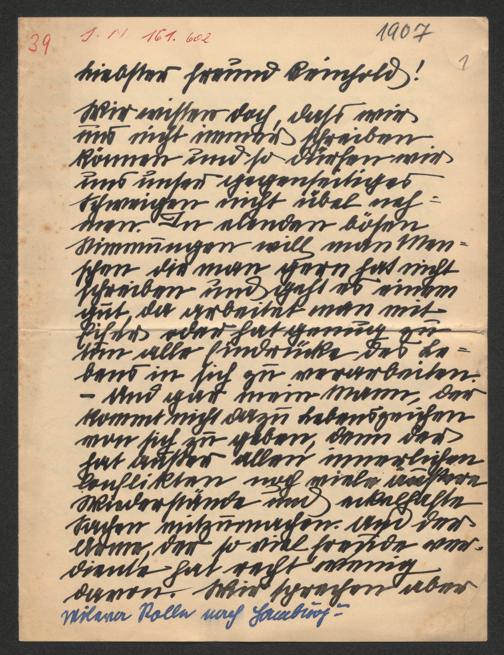 39 J. N. 161.602 1907
1
Liebster Freund Reinhold!
Wir wissen doch, dass wir
uns nicht immer schreiben
können und so dürfen wir
uns unser gegenseitiges
Schweigen nicht übel neh=
men. In elenden bösen
Stimmungen will man Men=
schen die man gern hat nicht
schreiben und geht es einem
gut, da arbeitet man mit
Eifer oder hat genug zu
tun alle Eindrücke des Le=
bens in sich zu verarbeiten.
– Und gar mein Mann, der
kommt nicht dazu Lebenszeichen
von sich zu geben, denn der
hat außer allen innerlichen
Conflikten noch viele äussere
Widerstände und ekelhafte
Sachen mitzumachen. Und der
Arme, der so viel Freude ver-
diente hat recht wenig
davon. Wir sprechen aber
Rolle nach Hamburg